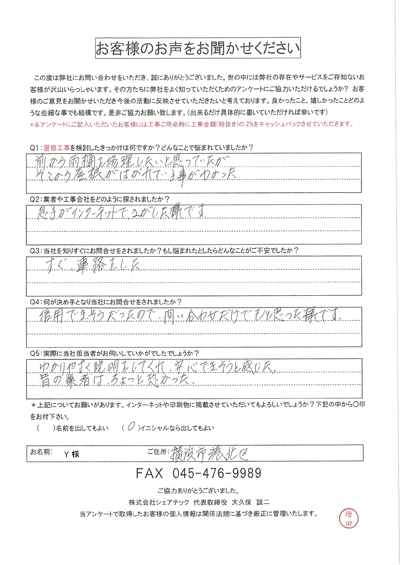 お客様のお声をお聞かせください
この度は弊社にお問い合わせをいただき、誠にありがとうございました。世の中には弊社の存在やサービスをご存知ないお
客様が沢山いらっしゃいます。その方たちに弊社をよく知っていただくためのアンケートにご協力いただけるでしょうか？ お客
様のご意見をお聞かせいただき今後の活動に反映させていただきたいと考えております。良かったこと、嬉しかったことどのよ
うな些細な事でも結構です。是非ご協力お願い致します。（出来るだけ具体的に書いていただければ幸いです）
*本アンケートにご記入いただいたお客様には工事ご用命時に工事金額(税抜き)の2%をキャッシュバックさせていただきます。
Q1:屋根工事を検討したきっかけは何ですか？どんなことで悩まれていましたか？
前から雨樋を修理したいと思っていたが
そこから屋根がはがれている事がわかった
Q2:業者や工事会社をどのように探されましたか？
息子がインターネットでさがした様です
Q3:当社を知りすぐにお問合せをされましたか？もし悩まれたとしたらどんなことがご不安でしたか？
すぐ、連絡をした
Q4:何が決め手となり当社にお問合せをされましたか？
信用できそうだったので、問い合わせだけでもと思った様です。
Q5:実際に当社担当者がお伺いしていかがでしたでしょうか？
わかりやすく説明をしてくれ、安心できそうと感じた。
昔の業者は、ちょっと恐かった。
*上記についてお願いがあります。インターネットや印刷物に掲載させていただいてもよろしいでしょうか？下記の中から〇印
をお付下さい。
( )名前を出してもよい (〇)イニシャルなら出してもよい
お名前: Y様 ご住所: 横浜市港北区
FAX 045-476-9989
ご協力ありがとうございました。
株式会社シェアテック 代表取締役 大久保 誠二
当アンケートで取得したお客様の個人情報は関係法規に基づき厳正に管理いたします。
増田